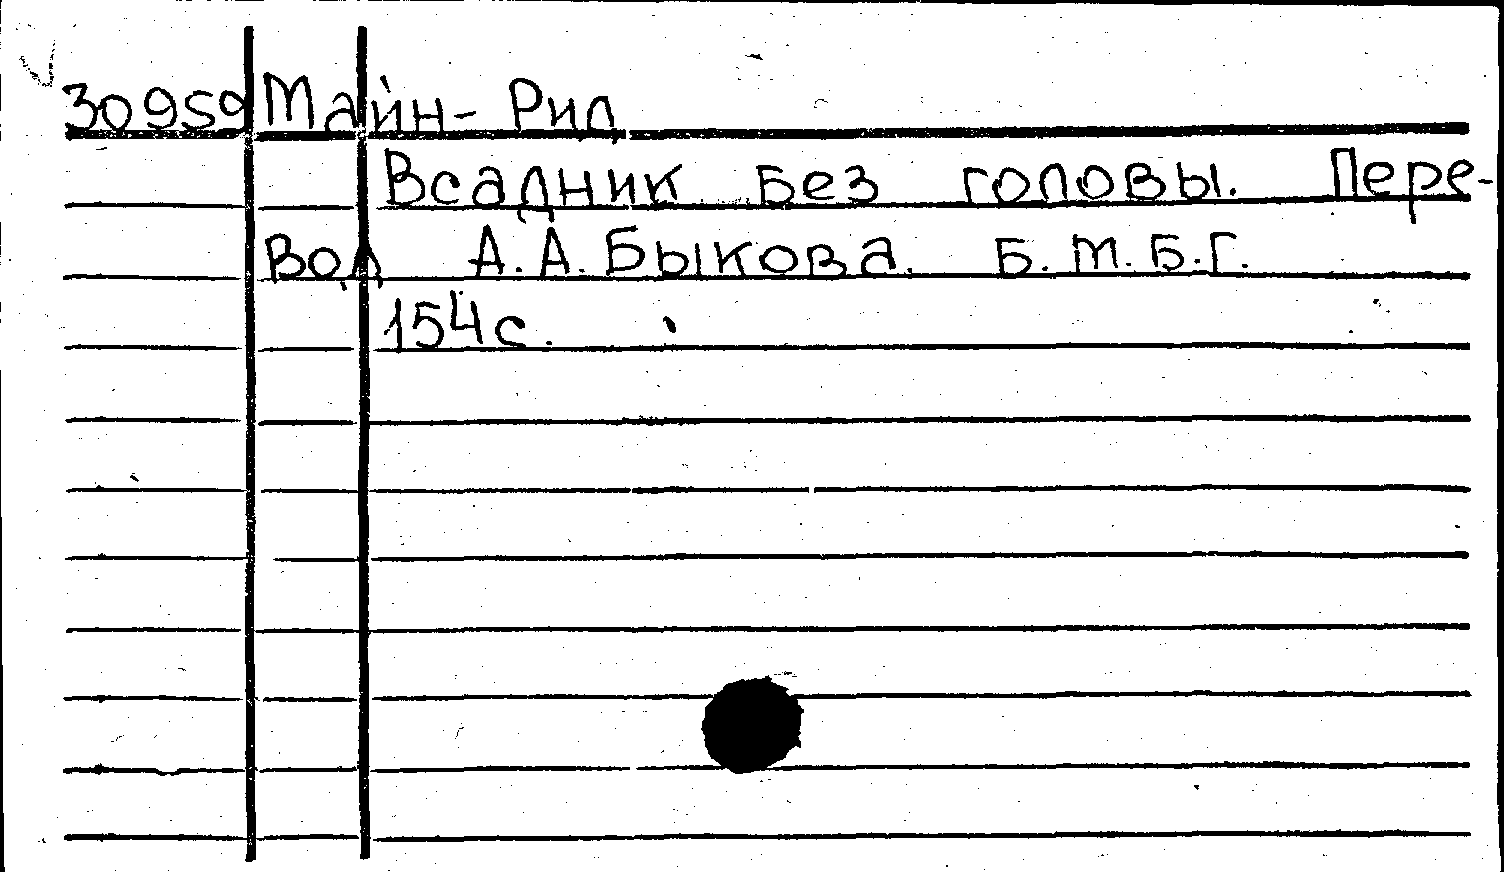 30959 Майн- Рид
Всадник без головы. Пере-
вод А.А. Быкова. Б.М.Б.Г.
154с.